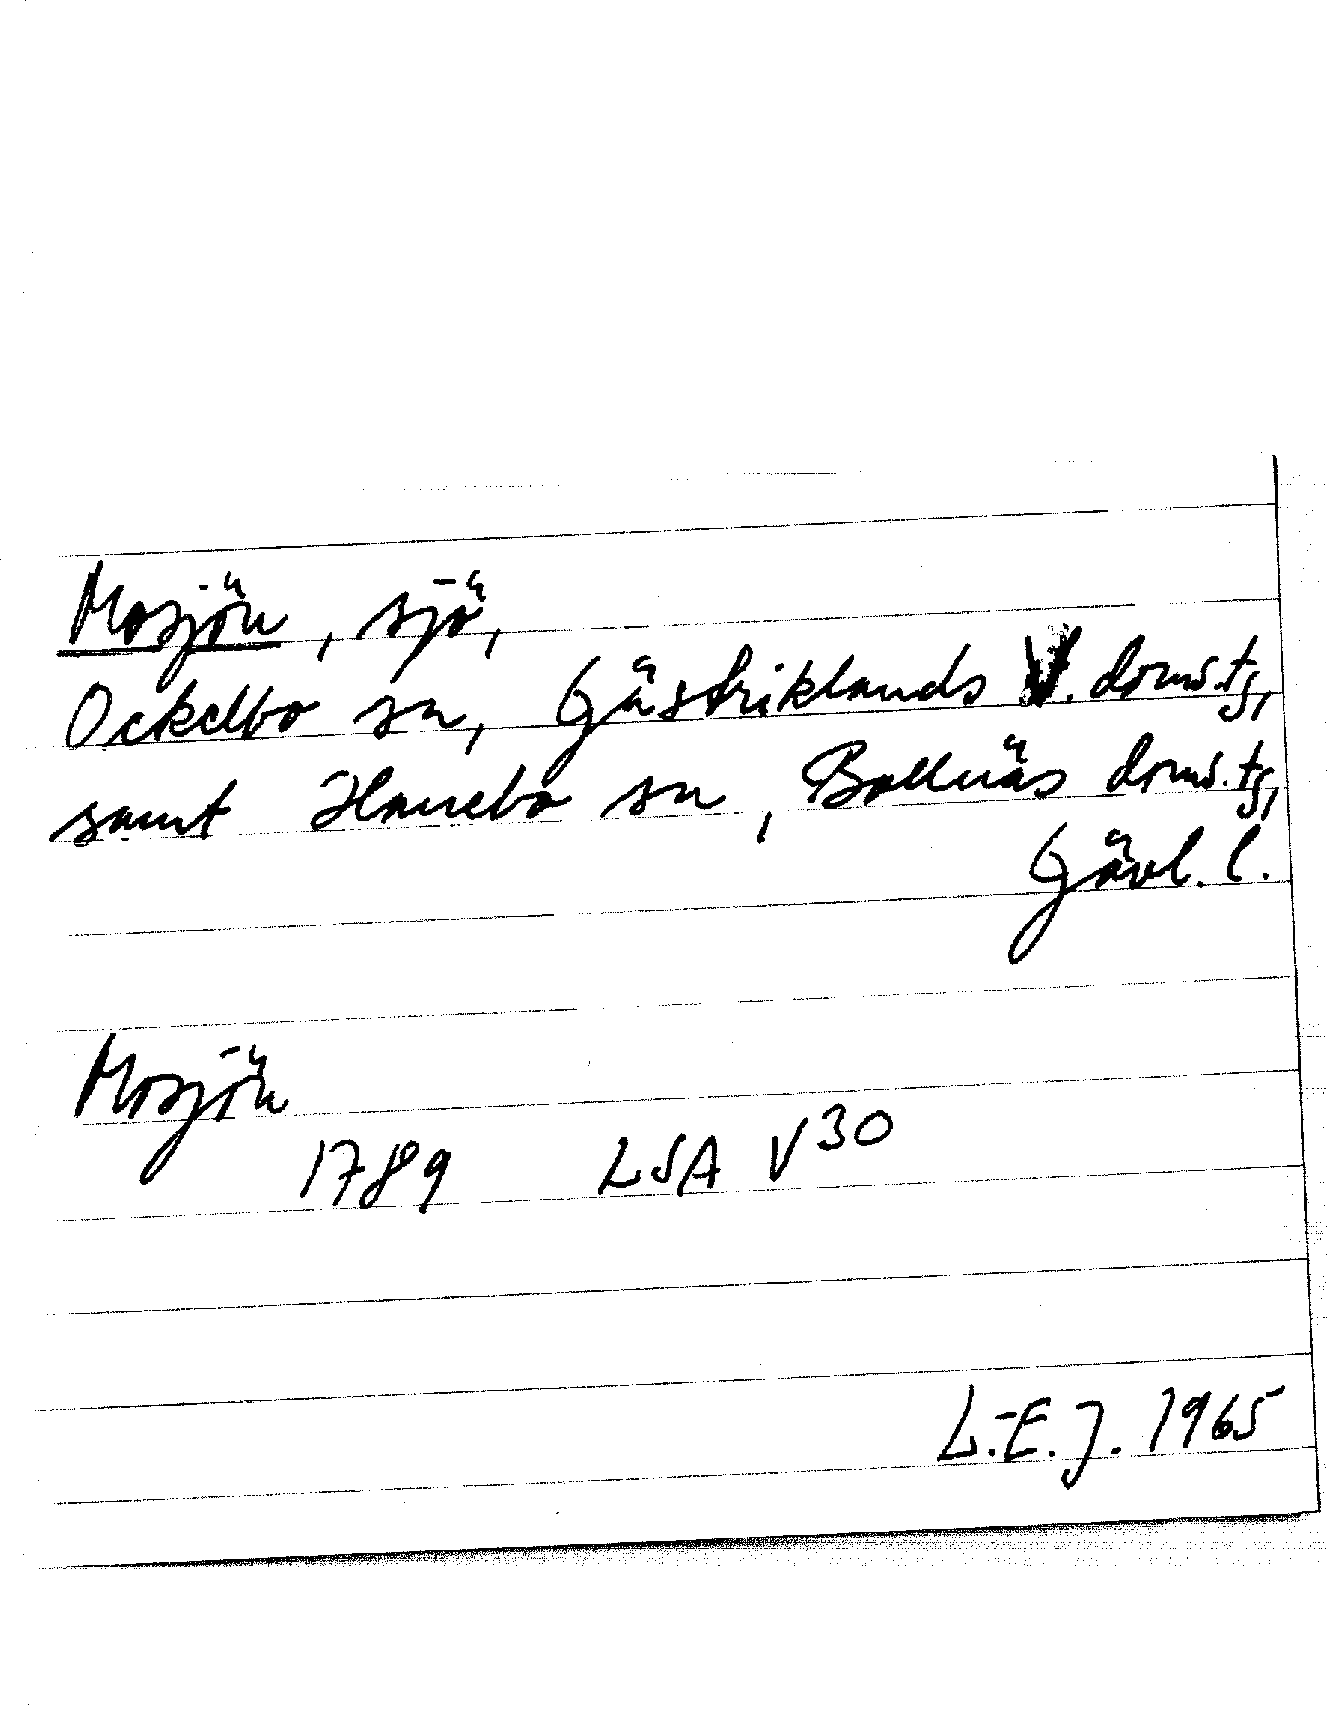 Mosjön, sjö,
Ockelbo sn, Gästriklands V. doms.tg,
samt Hanebo sn, Bollnäs doms.tg,
Gävl. l.
Mosjön
1789 LSA V30
L.-E. J. 1965